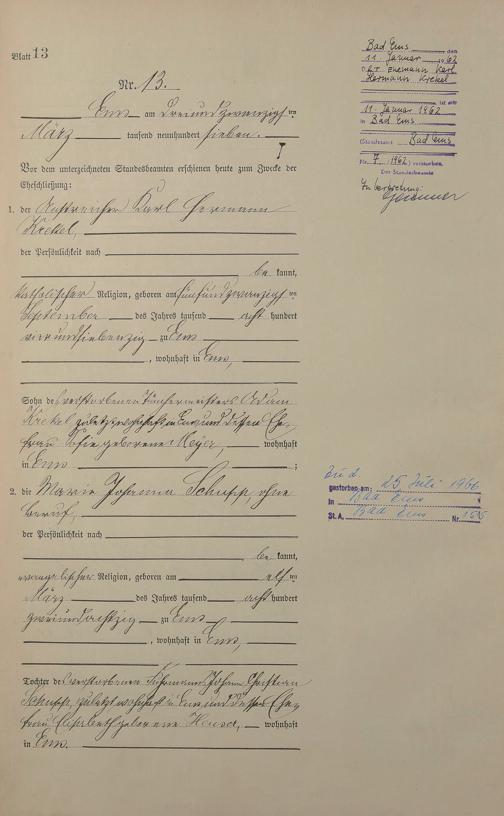 Blatt 13
Nr. 13.
Ems am dreiundzwanzigsten
März tausend neunhundert sieben.
Vor dem unterzeichneten Standesbeamten erschienen heute zum Zwecke der
Eheschließung:
1. der Anstreicher Karl Hermann
Krekel,
der Persönlichkeit nach
be kannt,
katholischer Religion, geboren am fünfundzwanzigsten
September des Jahres tausend acht hundert
vierundsiebenzig zu Ems
, wohnhaft in Ems,
Sohn des verstorbenen Tünchermeisters Adam
Krekel zuletzt wohnhaft in Ems und dessen Ehe-
frau Sofie geborene Meyer, wohnhaft
in Ems ;
2. die Marie Johanna Schupp, ohne
Beruf,
der Persönlichkeit nach
be kannt,
evangelischer Religion, geboren am elften
März des Jahres tausend acht hundert
zweiundachtzig zu Ems
, wohnhaft in Ems,
Tochter des verstorbenen Fuhrmanns Johann Christian
Schupp, zuletzt wohnhaft in Ems und dessen Ehe-
frau Elisabeth geborene wohnhaft
in Ems.
Bad Ems, den
11. Januar 1962
Der Ehemann Karl
Hermann Krekel
ist am
11. Januar 1962
in Bad Ems
(Standesamt Bad Ems
Nr. 7/1962) verstorben.
Der Standesbeamte
In Vertretung:
gestorben am: 25. Juli 1966
in Bad Ems
St.A. Bad Ems Nr.